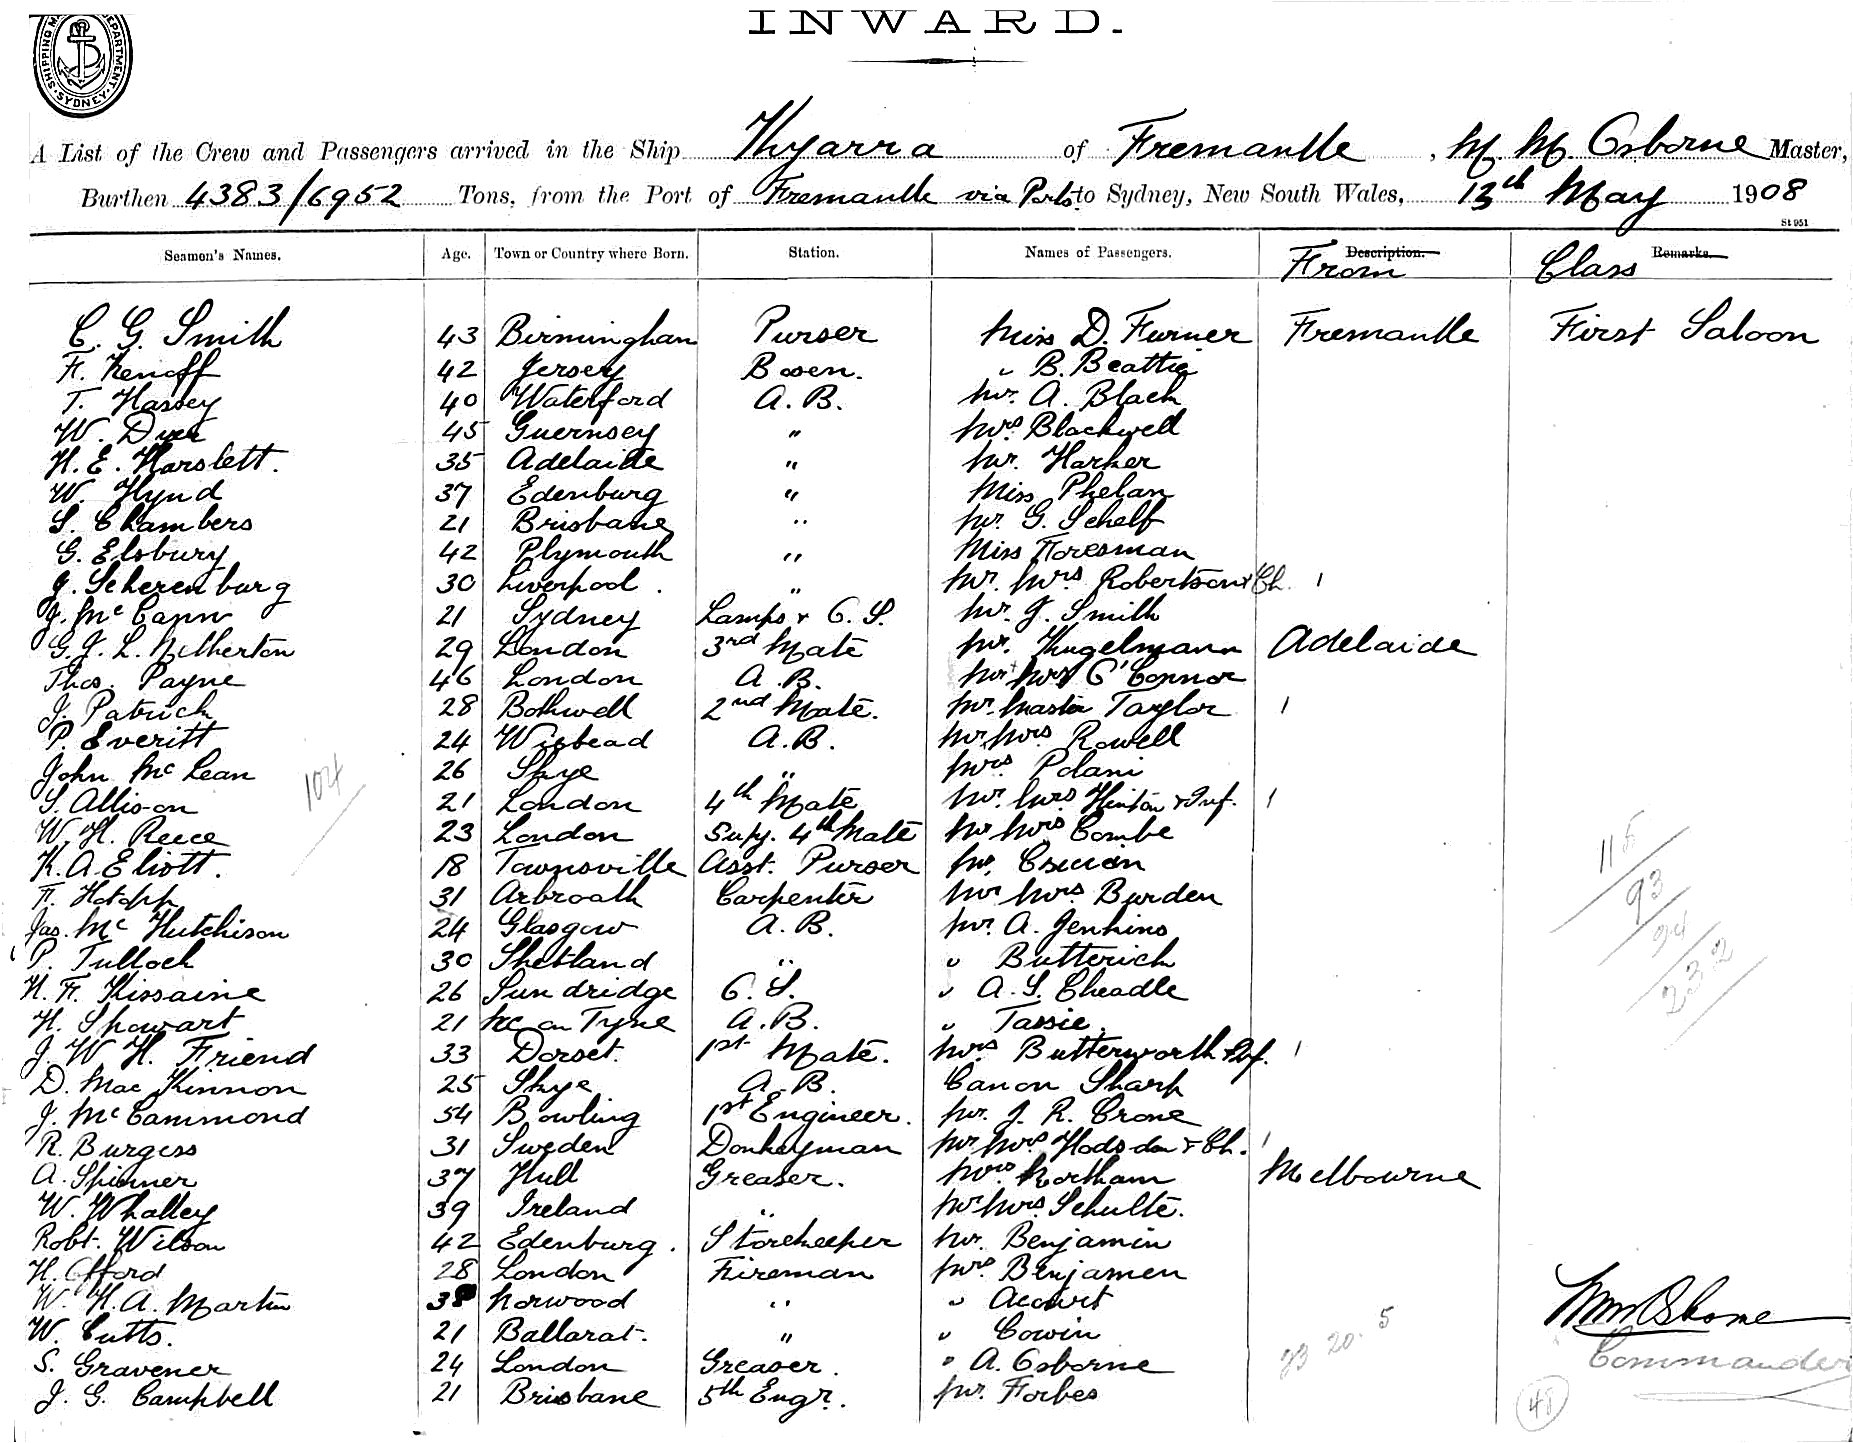 INWARD.
SHIPPING DEPARTMENT SYDNEY
A List of the Crew and Passengers arrived in the Ship Kyarra of Fremantle, M. M. Osborne Master,
Burthen 4383/6952 Tons, from the Port of Fremantle via Ports to Sydney, New South Wales, 13th May 1908
St 951
Seamen's Names. Age. Town or Country where Born. Station. Names of Passengers. Description. From Remarks. Class
C. G. Smith 43 Birmingham Purser Miss D. Furner Fremantle First Saloon
F. Renoff 42 Jersey Bosen. " B. Beattie
T. Hassey 40 Waterford A. B. Mr. A. Black
W. Dyer 45 Guernsey " Mrs Blackwell
H. E. Harslett. 35 Adelaide " Mr. Harker
W. Hynd 37 Edenburg " Miss Phelan
S. Chambers 21 Brisbane " Mr. G. Schelf
G. Elsbury 42 Plymouth " Miss Horesman
J. Scherenburg 30 Liverpool. " Mr. Mrs Robertson & Ch. 1
J. McCann 21 Sydney Lamps & O. S. Mr. J. Smith
G. J. L. Netherton 29 London 3rd Mate Mr. Kugelmann Adelaide
Thos. Payne 46 London A. B. Mr Mrs O'Connor
J. Patrick 28 Bothwell 2nd Mate. Mr. Master Taylor 1
P. Everitt 24 Wisbead A. B. Mr. Mrs Rowell
John McLean 26 Skye " Mrs Polani
S. Allison 21 London 4th Mate Mr. Mrs. Hinton & Inf. 1
W. H. Reece 23 London Supy. 4th Mate Mr Mrs Combe
K. A. Eliott. 18 Townsville Asst. Purser Mr.
F. Hotopp 31 Arbroath Carpenter Mr Mrs Burden
Jas. Mc Hutchison 24 Glasgow A. B. Mr. A. Jenkins
P. Tulloch 30 Shetland " " Butterick
H. F. Kissaine 26 Sundridge O. S. " A. S. Cheadle
H. Showart 21 Nc on Tyne A. B. " Tassie.
J. W. H. Friend 33 Dorset. 1st Mate. Mrs Butterworth & Inf. 1
D. MacKinnon 25 Skye A. B. Canon Sharp
J. McCammond 54 Bowling 1st Engineer. Mr. J. R. Crone
R. Burgess 31 Sweden Donkeyman Mr Mrs Hodsdon & Ch. 1
A. Spinner 37 Hull Greaser. Mrs. Northam Melbourne
W. Whalley 39 Ireland " Mr Mrs. Schulte.
Robt. Wilson 42 Edenburg. Storekeeper Mr. Benjamin
H. Offord 28 London Fireman Mrs. Benjamen
W. H. A. Martin 38 Norwood " " Acourt
W. Cutts. 21 Ballarat. " " Cowin
S. Gravener 24 London Greaser. " A. Osborne
J. G. Campbell 21 Brisbane 5th Engr. Mr. Forbes
104
93
94
232
MM Osborne
Commander
23 20. 5
48